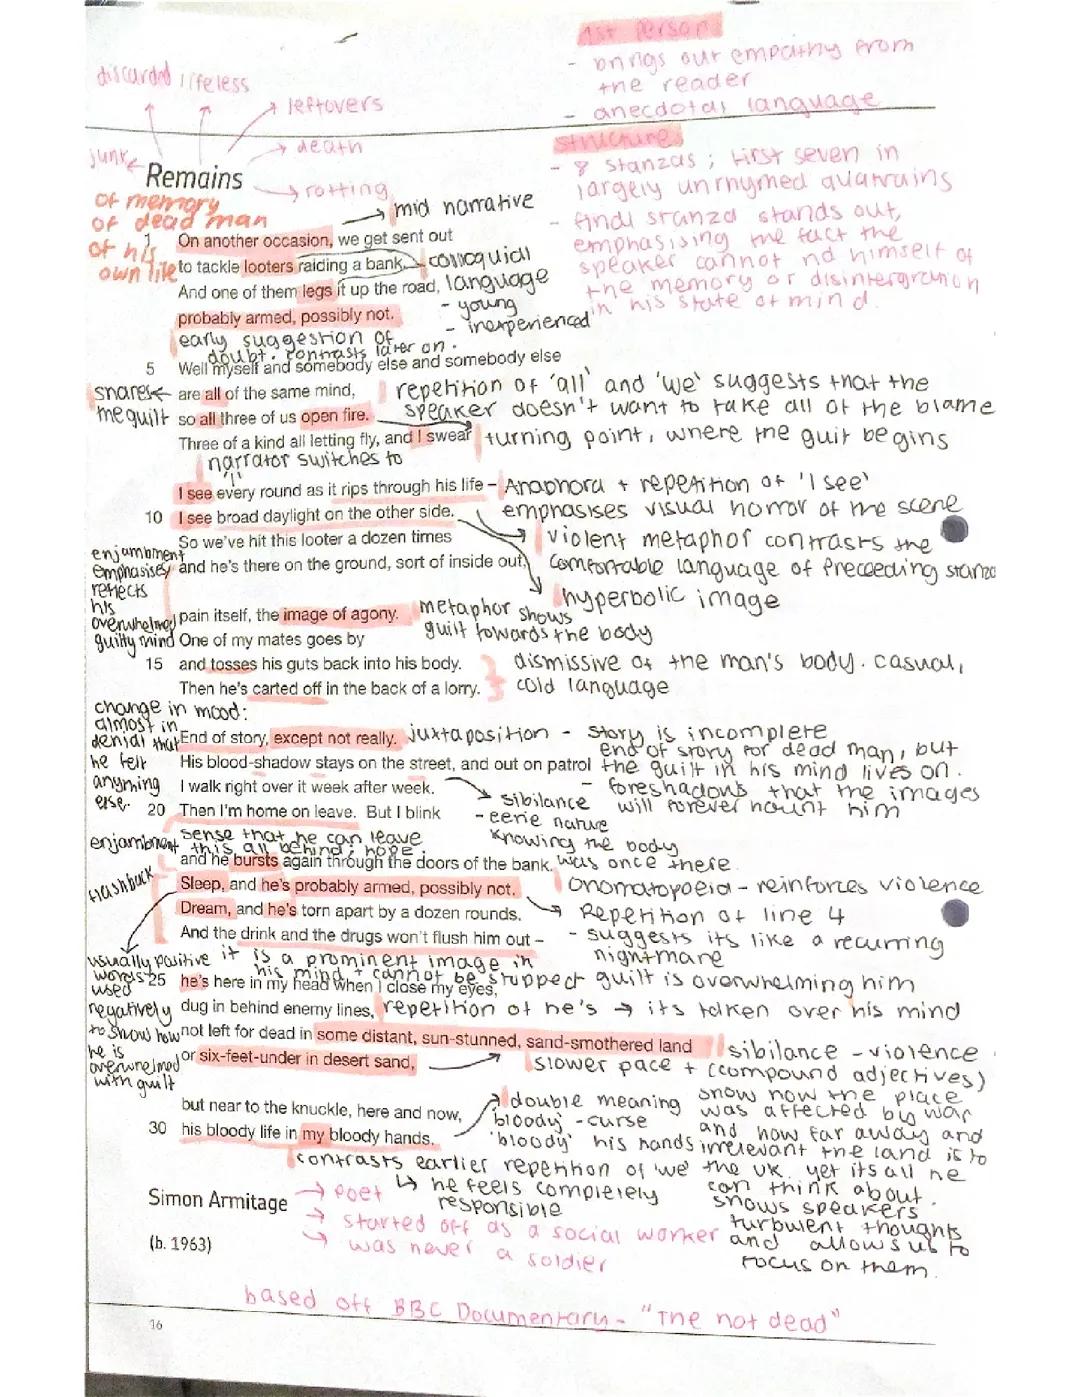 1st person
- brings out empathy from
the reader
- anecdotal language
discarded lifeless
leftovers
death
junk
rotting
Remains
of memory
of dead man
of his
own life
structure
- 8 stanzas; first seven in
largely unrhymed quatrains
- final stanza stands out,
emphasising the fact the
speaker cannot rid himself of
the memory or disintergration
in his state of mind.
mid narrative
1 On another occasion, we get sent out
to tackle looters raiding a bank.
colloquial
language
And one of them legs it up the road,
- young
- inexperienced
probably armed, possibly not.
early suggestion of
doubt. contrasts later on.
5 Well myself and somebody else and somebody else
are all of the same mind,
shares
the guilt
repetition of 'all' and 'we' suggests that the
speaker doesn't want to take all of the blame
so all three of us open fire.
Three of a kind all letting fly, and I swear
turning point, where the guilt begins
narrator switches to
'I'
I see every round as it rips through his life –
Anaphora + repetition of 'I see'
emphasises visual horror of the scene
10 I see broad daylight on the other side.
So we've hit this looter a dozen times
violent metaphor contrasts the
comfortable language of preceeding stanza
and he's there on the ground, sort of inside out,
enjambment
emphasises/
reflects
his
overwhelmed
guilty mind
hyperbolic image
pain itself, the image of agony.
metaphor shows
guilt towards the body
One of my mates goes by
15 and tosses his guts back into his body.
Then he's carted off in the back of a lorry.
dismissive of the man's body. casual,
cold language
change in mood:
almost in
denial that
he felt
anything
else.
End of story, except not really.
juxtaposition - story is incomplete
end of story for dead man, but
the guilt in his mind lives on.
His blood-shadow stays on the street, and out on patrol
I walk right over it week after week.
- foreshadows that the images
will forever haunt him
sibilance
- eerie nature
knowing the body
was once there.
20 Then I'm home on leave. But I blink
sense that he can leave
this all behind; hope.
enjambment
and he bursts again through the doors of the bank.
onomatopoeia - reinforces violence
flashback
Sleep, and he's probably armed, possibly not.
Repetition of line 4
- suggests its like a recurring
nightmare
Dream, and he's torn apart by a dozen rounds.
And the drink and the drugs won't flush him out –
it is a prominent image in
his mind + cannot be stopped
guilt is overwhelming him
usually positive
words
used
negatively
to show how
he is
overwhelmed
with guilt
25 he's here in my head when I close my eyes,
dug in behind enemy lines,
repetition of he's → its taken over his mind
not left for dead in some distant, sun-stunned, sand-smothered land
sibilance - violence
slower pace + (compound adjectives)
or six-feet-under in desert sand,
show how the place
was affected by war
and how far away and
irrelevant the land is to
the UK. yet its all he
can think about.
shows speakers
turbulent thoughts
and allows us to
focus on them.
double meaning
'bloody' - curse
'bloody' his hands
but near to the knuckle, here and now,
30 his bloody life in my bloody hands.
contrasts earlier repetition of 'we'
↳ he feels completely
responsible
Simon Armitage
→ poet
→ started off as a social worker
→ was never a soldier
(b. 1963)
based off BBC Documentary - "The not dead"
16